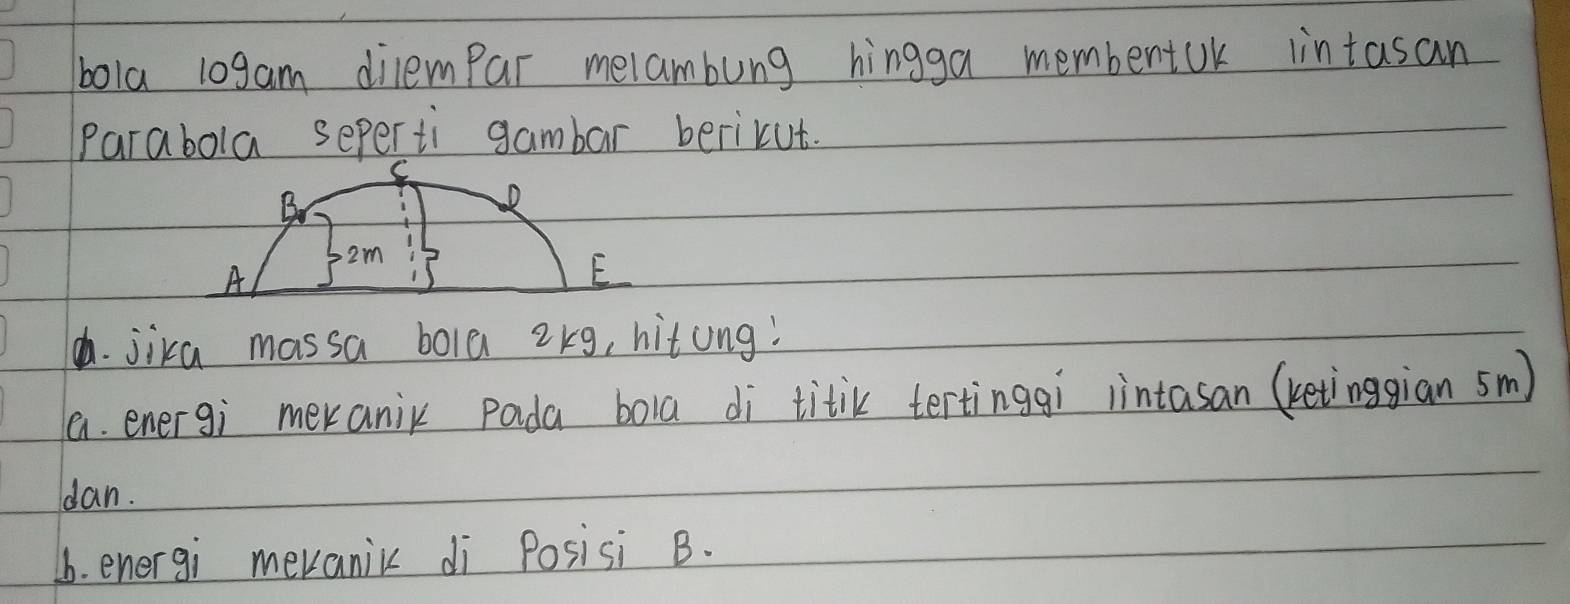 bola logam dilempar melambung hingga membentuk lintasan
Parabola seperti gambar berikut.
C
B D
2m
A E
a. jika massa bola 2kg, hitung:
a. energi mekanik Pada bola di titik tertinggi lintasan (ketinggian 5m)
dan.
b. energi mekanik di Posisi B.